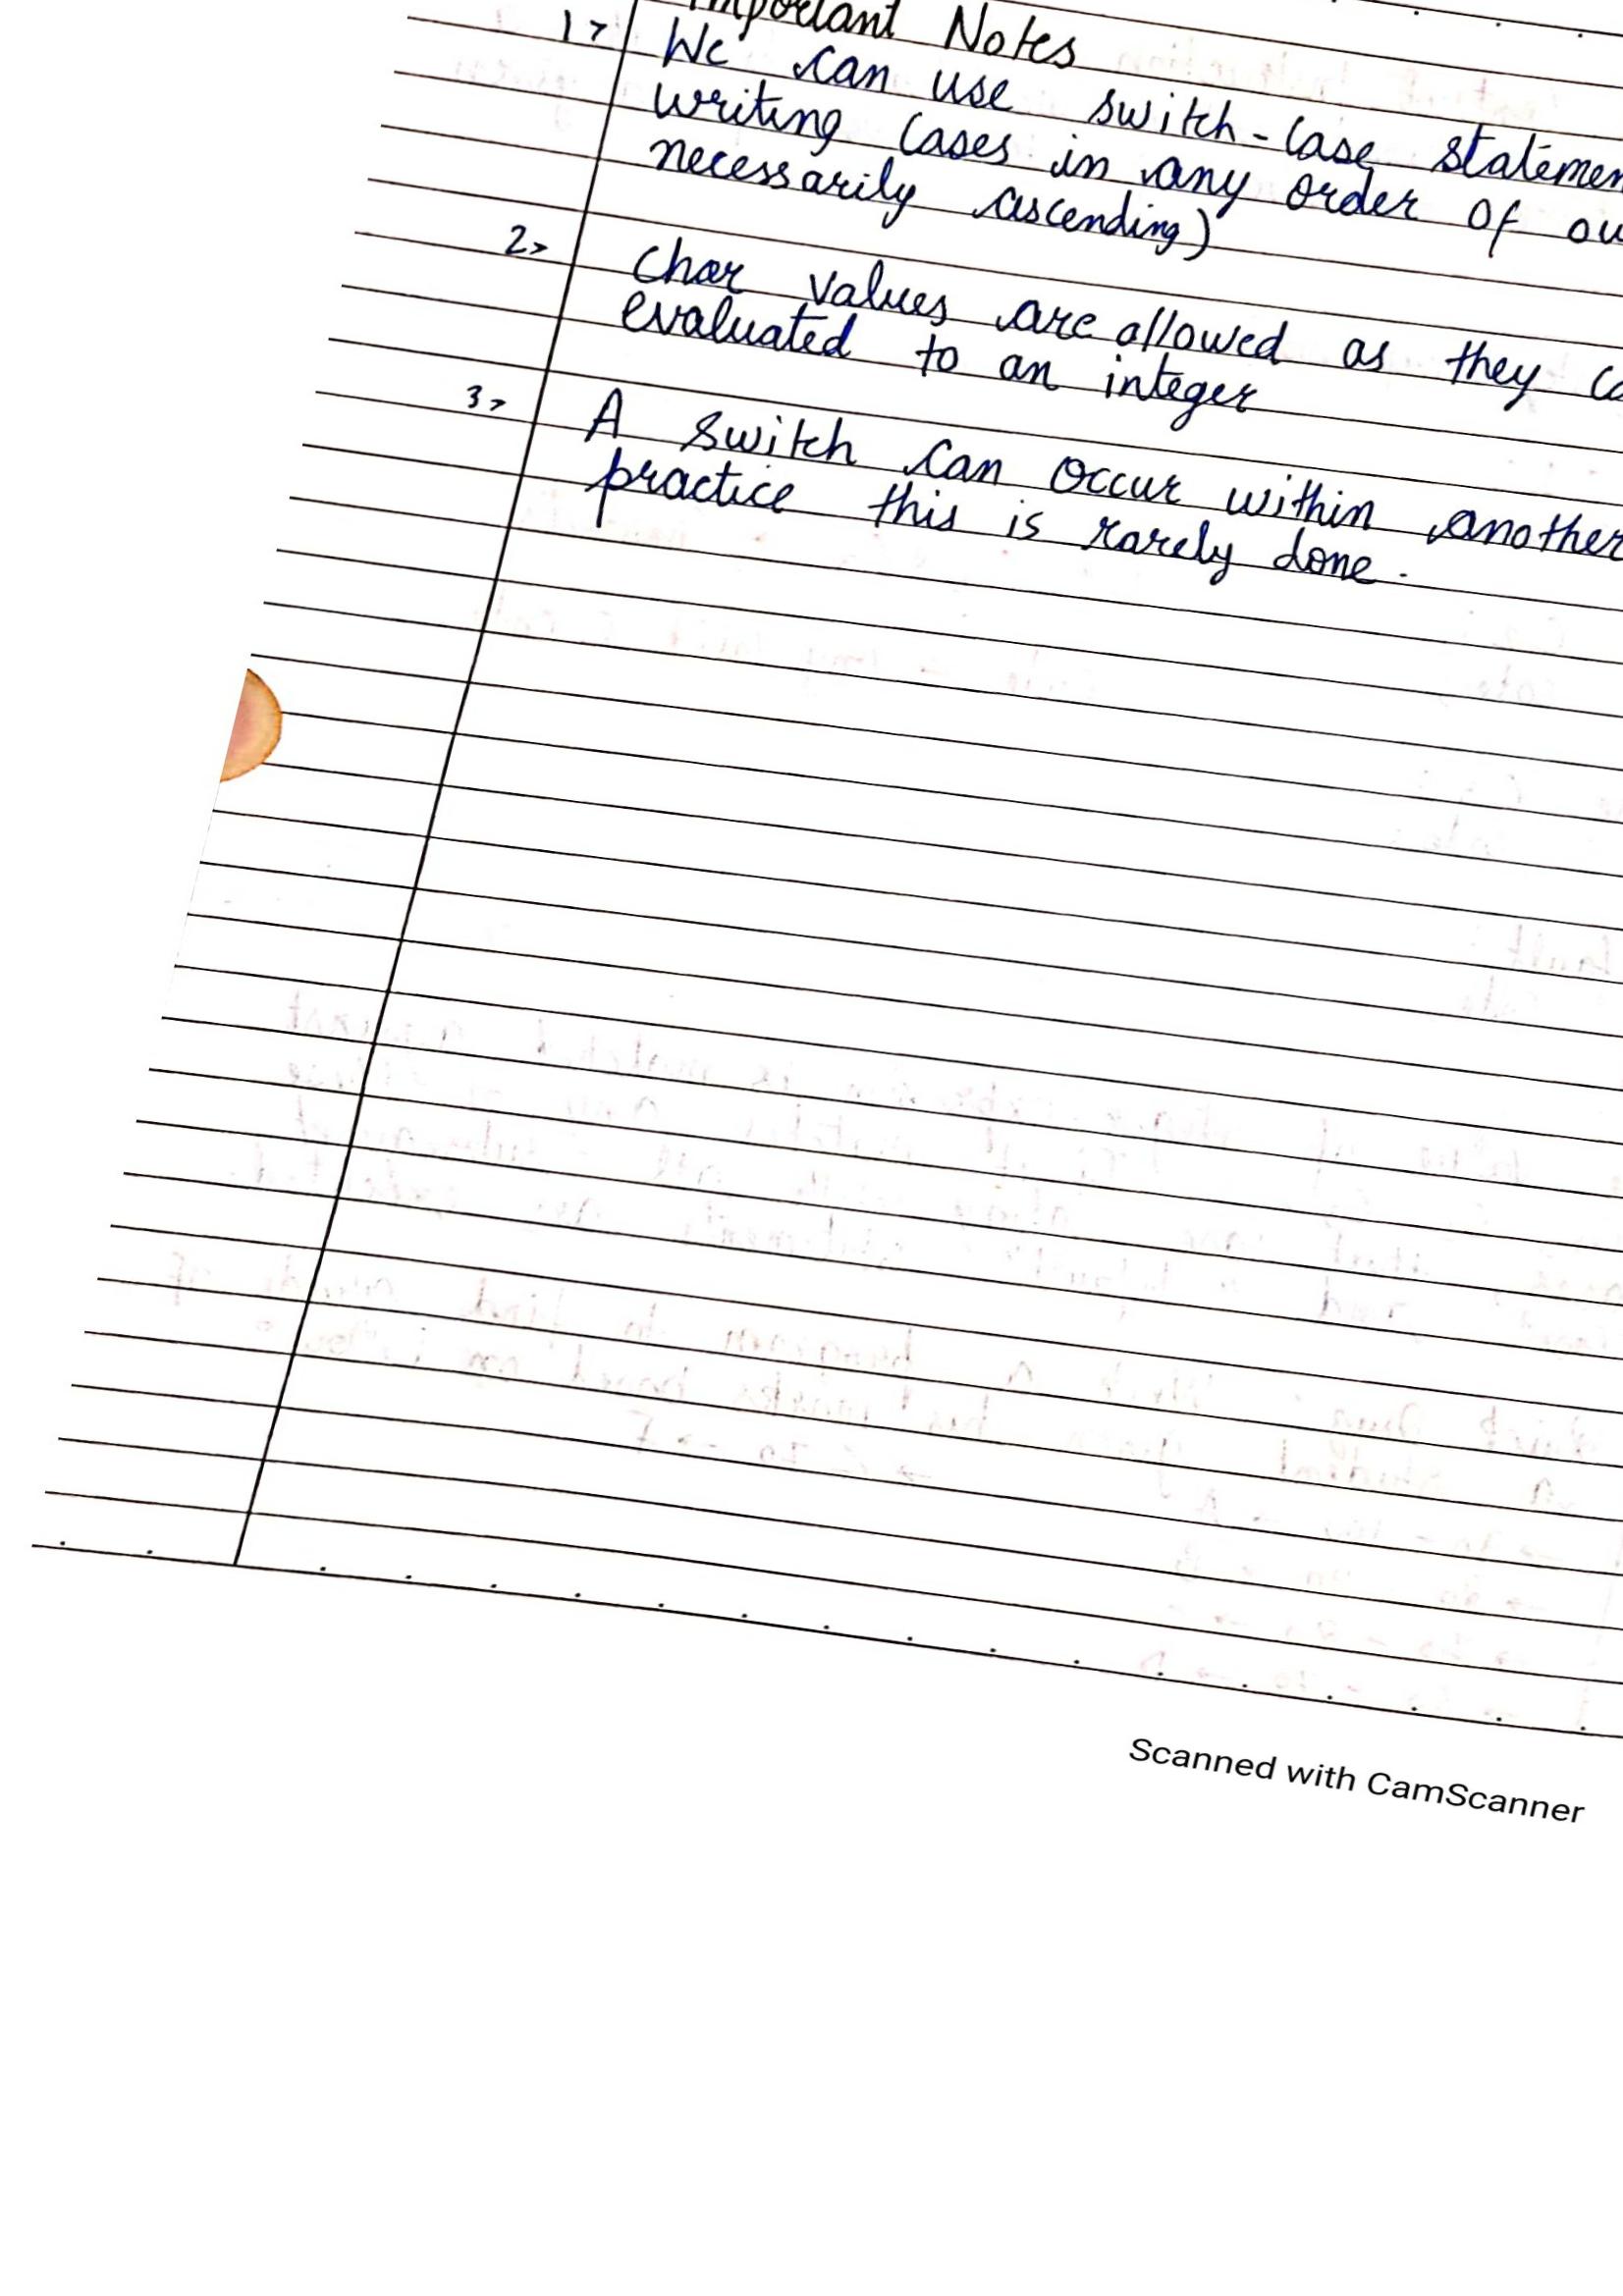 Important Notes
1> We can use switch-case
writing cases in any order of
necessarily ascending)
2> Char values are allowed as they
evaluated to an integer
3> A switch can occur within another
practice this is rarely done.
Scanned with CamScanner